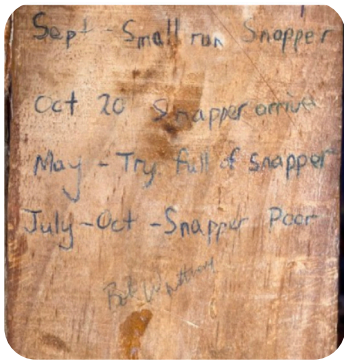 Sept - Small run Snapper
Oct 20 Snapper arrive
May - Try full of snapper
July - Oct - Snapper Poor
Bob